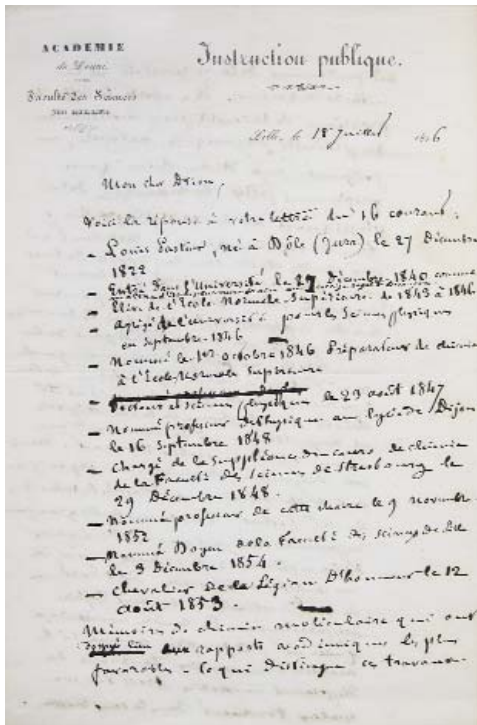 ACADEMIE
de Douai
Faculté des Sciences
DE LILLE
Instruction publique.
Lille, le 18 Juillet 1856
Mon cher Drion,
Voici la réponse à votre lettre du 16 courant:
– Louis Pasteur, né à Dôle (Jura) le 27 Décembre
1822
– Entré dans l'Université le 27 Décembre 1840 comme
– Elève de l'Ecole Normale Supérieure de 1843 à 1846
– Agrégé de l'Université pour les Sciences physiques
en septembre 1846
– Nommé le 1er octobre 1846 Préparateur de chimie
à l'Ecole Normale Supérieure
– Docteur ès sciences physiques le 23 août 1847
– Nommé professeur de Physique au lycée de Dijon
le 16 Septembre 1848
– Chargé de la Suppléance du cours de chimie
de la Faculté des sciences de Strasbourg le
29 Décembre 1848.
– Nommé professeur de cette chaire le 9 novembre
1852
– Nommé Doyen de la Faculté des sciences de Lille
le 3 Décembre 1854.
– Chevalier de la Légion d'honneur le 12
août 1853.
Mémoires de chimie moléculaire qui ont
donné lieu aux rapports académiques les plus
favorables – ce qui distingue ces travaux